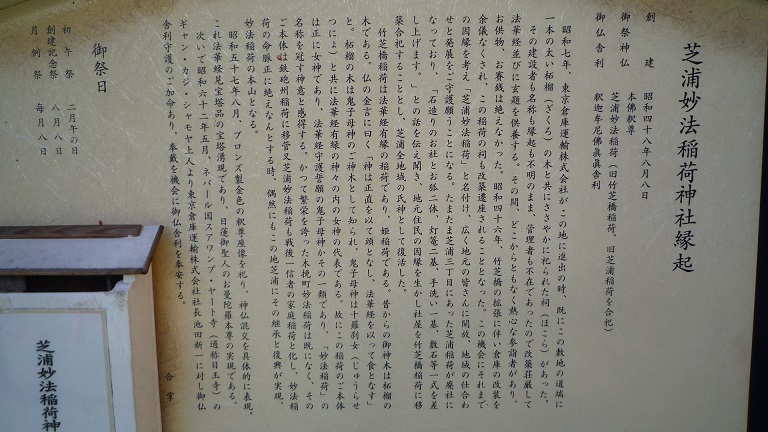 芝浦妙法稲荷神社縁起
創建　昭和四十八年八月八日
御祭神仏　本佛釈尊
芝浦妙法稲荷（旧竹芝橋稲荷、旧芝浦稲荷を合祀）
御仏舎利　釈迦牟尼佛眞眞舎利
昭和七年、東京倉庫運輸株式会社がこの地に進出の時、既にこの敷地の道端に
一本の太い柘榴（ざくろ）の木と共にささやかに祀られた祠（ほこら）があった。
その建設者も名称も縁起も不明のまま、管理者も不在であったので改築荘厳して
法華経並びに玄題を供養する。その間、どこからともなく熱心な参詣者があり、
お供物、お賽銭は絶えなかった。昭和四十六年、竹芝橋の拡張に伴い倉庫の改築を
余儀なくされ、この稲荷の祠も改築遷座されることとなった。この機会にそれまで
の因縁を考え「芝浦妙法稲荷」と名付け、広く地元の皆さんに開放、地域の仕合わ
せと発展をご守護願うことになる。たまたま芝浦三丁目にあった芝浦稲荷が廃社に
なっており、「石造りのお社とお狐二体、灯篭二基、手洗い一基、敷石等一式を差
し上げます。」との話を伝え聞き、地元住民の因縁を生かし社屋を竹芝橋稲荷に移
築合祀することとし、芝浦全地域の氏神として復活した。
竹芝橋稲荷は法華経有縁の稲荷であり、姫稲荷である。昔からの御神木は柘榴の
木である。仏の金言に曰く「神は正直を以て頭となし、法華経を以って食となす」
と。柘榴の木は鬼子母神のご神木として知られ、鬼子母神は十羅刹女（じゅうらせ
つにょ）と共に法華経有縁の神々の内の女神の代表である。故にこの稲荷のご本体
は正に女神であり、法華経守護誓願の鬼子母神かその一類であり、「妙法稲荷」の
名称を冠す神意と感得する。かつて繁栄を誇った木挽町妙法稲荷は既になく、その
ご本体は鉄砲州稲荷に移管又芝浦妙法稲荷も戦後一信者の家庭稲荷と化し、妙法稲
荷の命脈正に絶えなんとする時、偶然にもこの地芝浦にその継承と復興が実現、
妙法稲荷の本山となる。
昭和五十七年八月、ブロンズ製金色の釈尊座像を祀り、神仏混交を具体的に表現。
これ法華経見宝塔品の宝塔湧現であり、日蓮御聖人のお曼陀羅本尊の実現である。
次いで昭和六十二年五月、ネパール国スアワンブ・ヤート寺（通称目玉寺）の
ギャン・カジ・シャモヤ上人より東京倉庫運輸株式会社社長池田新一に対し御仏
舎利守護のご加命あり、奉戴を機会に御仏舎利を奉安する。
合掌
御祭日
初午祭　二月午の日
創建記念祭　八月八日
月例祭　毎月八日
芝浦妙法稲荷神